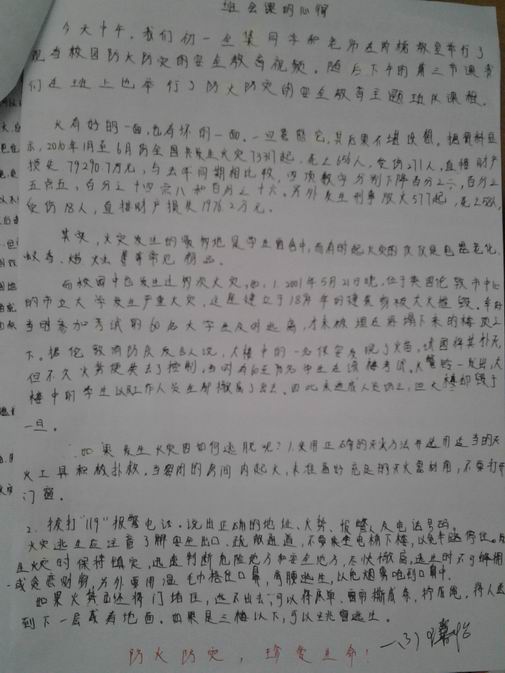 班会课的心得
今天中午，我们初一全体同学和老师在阶梯教室举行了
观看校园防火防灾的安全教育视频。随后下午的第三节课我
们在班上也举行了防火防灾的安全教育主题班队课程。
火有好的一面，也有坏的一面。一旦忽视它，其后果不堪设想。据资料显
示，2010年1月至6月份全国共发生火灾73317起，死亡656人，受伤271人，直接财产
损失79270.7万元，与去年同期相比较，四项数字分别下降百分之六，百分之
五点五，百分之十四点八和百分之十六。另外发生刑事放火577起，死亡58人，
受伤18人，直接财产损失1976.2万元。
其实，火灾发生的最频地是学生宿舍中，而有时起火灾的原仅仅是电器老化、
蚊香、烟火等等常见物品。
在校园中也发生过多次火灾，如，1.2001年5月21日晚，位于英国伦敦市中心
的市立大学发生严重火灾，这座建立于18 年的建筑物被大火烧毁。幸好
当时参加考试的60名大学生及时逃离，才未被埋在坍塌下来的楼顶之
下。据伦敦消防队发言人说，大楼中的一名保安发现了火苗，试图将其扑灭
但不久火势便失去了控制，当时有近百名学生在该楼考试。火警铃一发出，大
楼中的学生以及工作人员全部撤离了出去。因此未造成人员伤亡，但大楼却毁于
一旦。
如果发生火灾因如何逃脱呢？1.采用正确的灭火方法并选用适当的灭
火工具积极扑救。当密闭的房间内起火，未准备好充足的灭火器材用，不要打开
门窗。
2.拨打“119”报警电话。说出正确的地址、火势、报警人及电话号码。
火灾逃生应注意了解安全出口、疏散通道，不要乘坐电梯下楼，以免卡 停住。在
在火灾时保持镇定，迅速判断危险地方和安全地方，尽快撤离，逃生时不可留恋
或贪恋财物，另外要用湿毛巾捂住口鼻，弯腰逃生，以免烟雾呛到口鼻中。
如果火势已经将门堵住，逃不出去，可以将床单、窗帘撕成条，拧成绳，将人送
到下一层或有地面。如果是三楼以下，可以
防火防灾，珍爱生命！